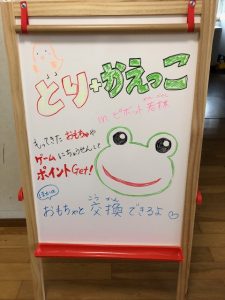 とり+かえっこ
in ピボット若林
もってきた おもちゃや
ゲームにちょうせんして
ポイントGet!
おもちゃと交換できるよ
こうかん